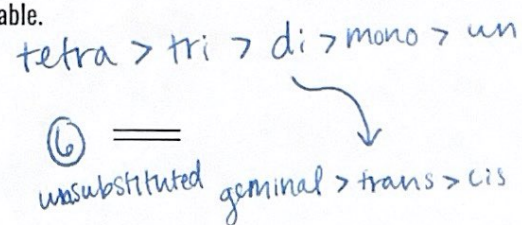 able.
tetra > tri > di > mono > un
⑥
unsubstituted geminal > trans > cis